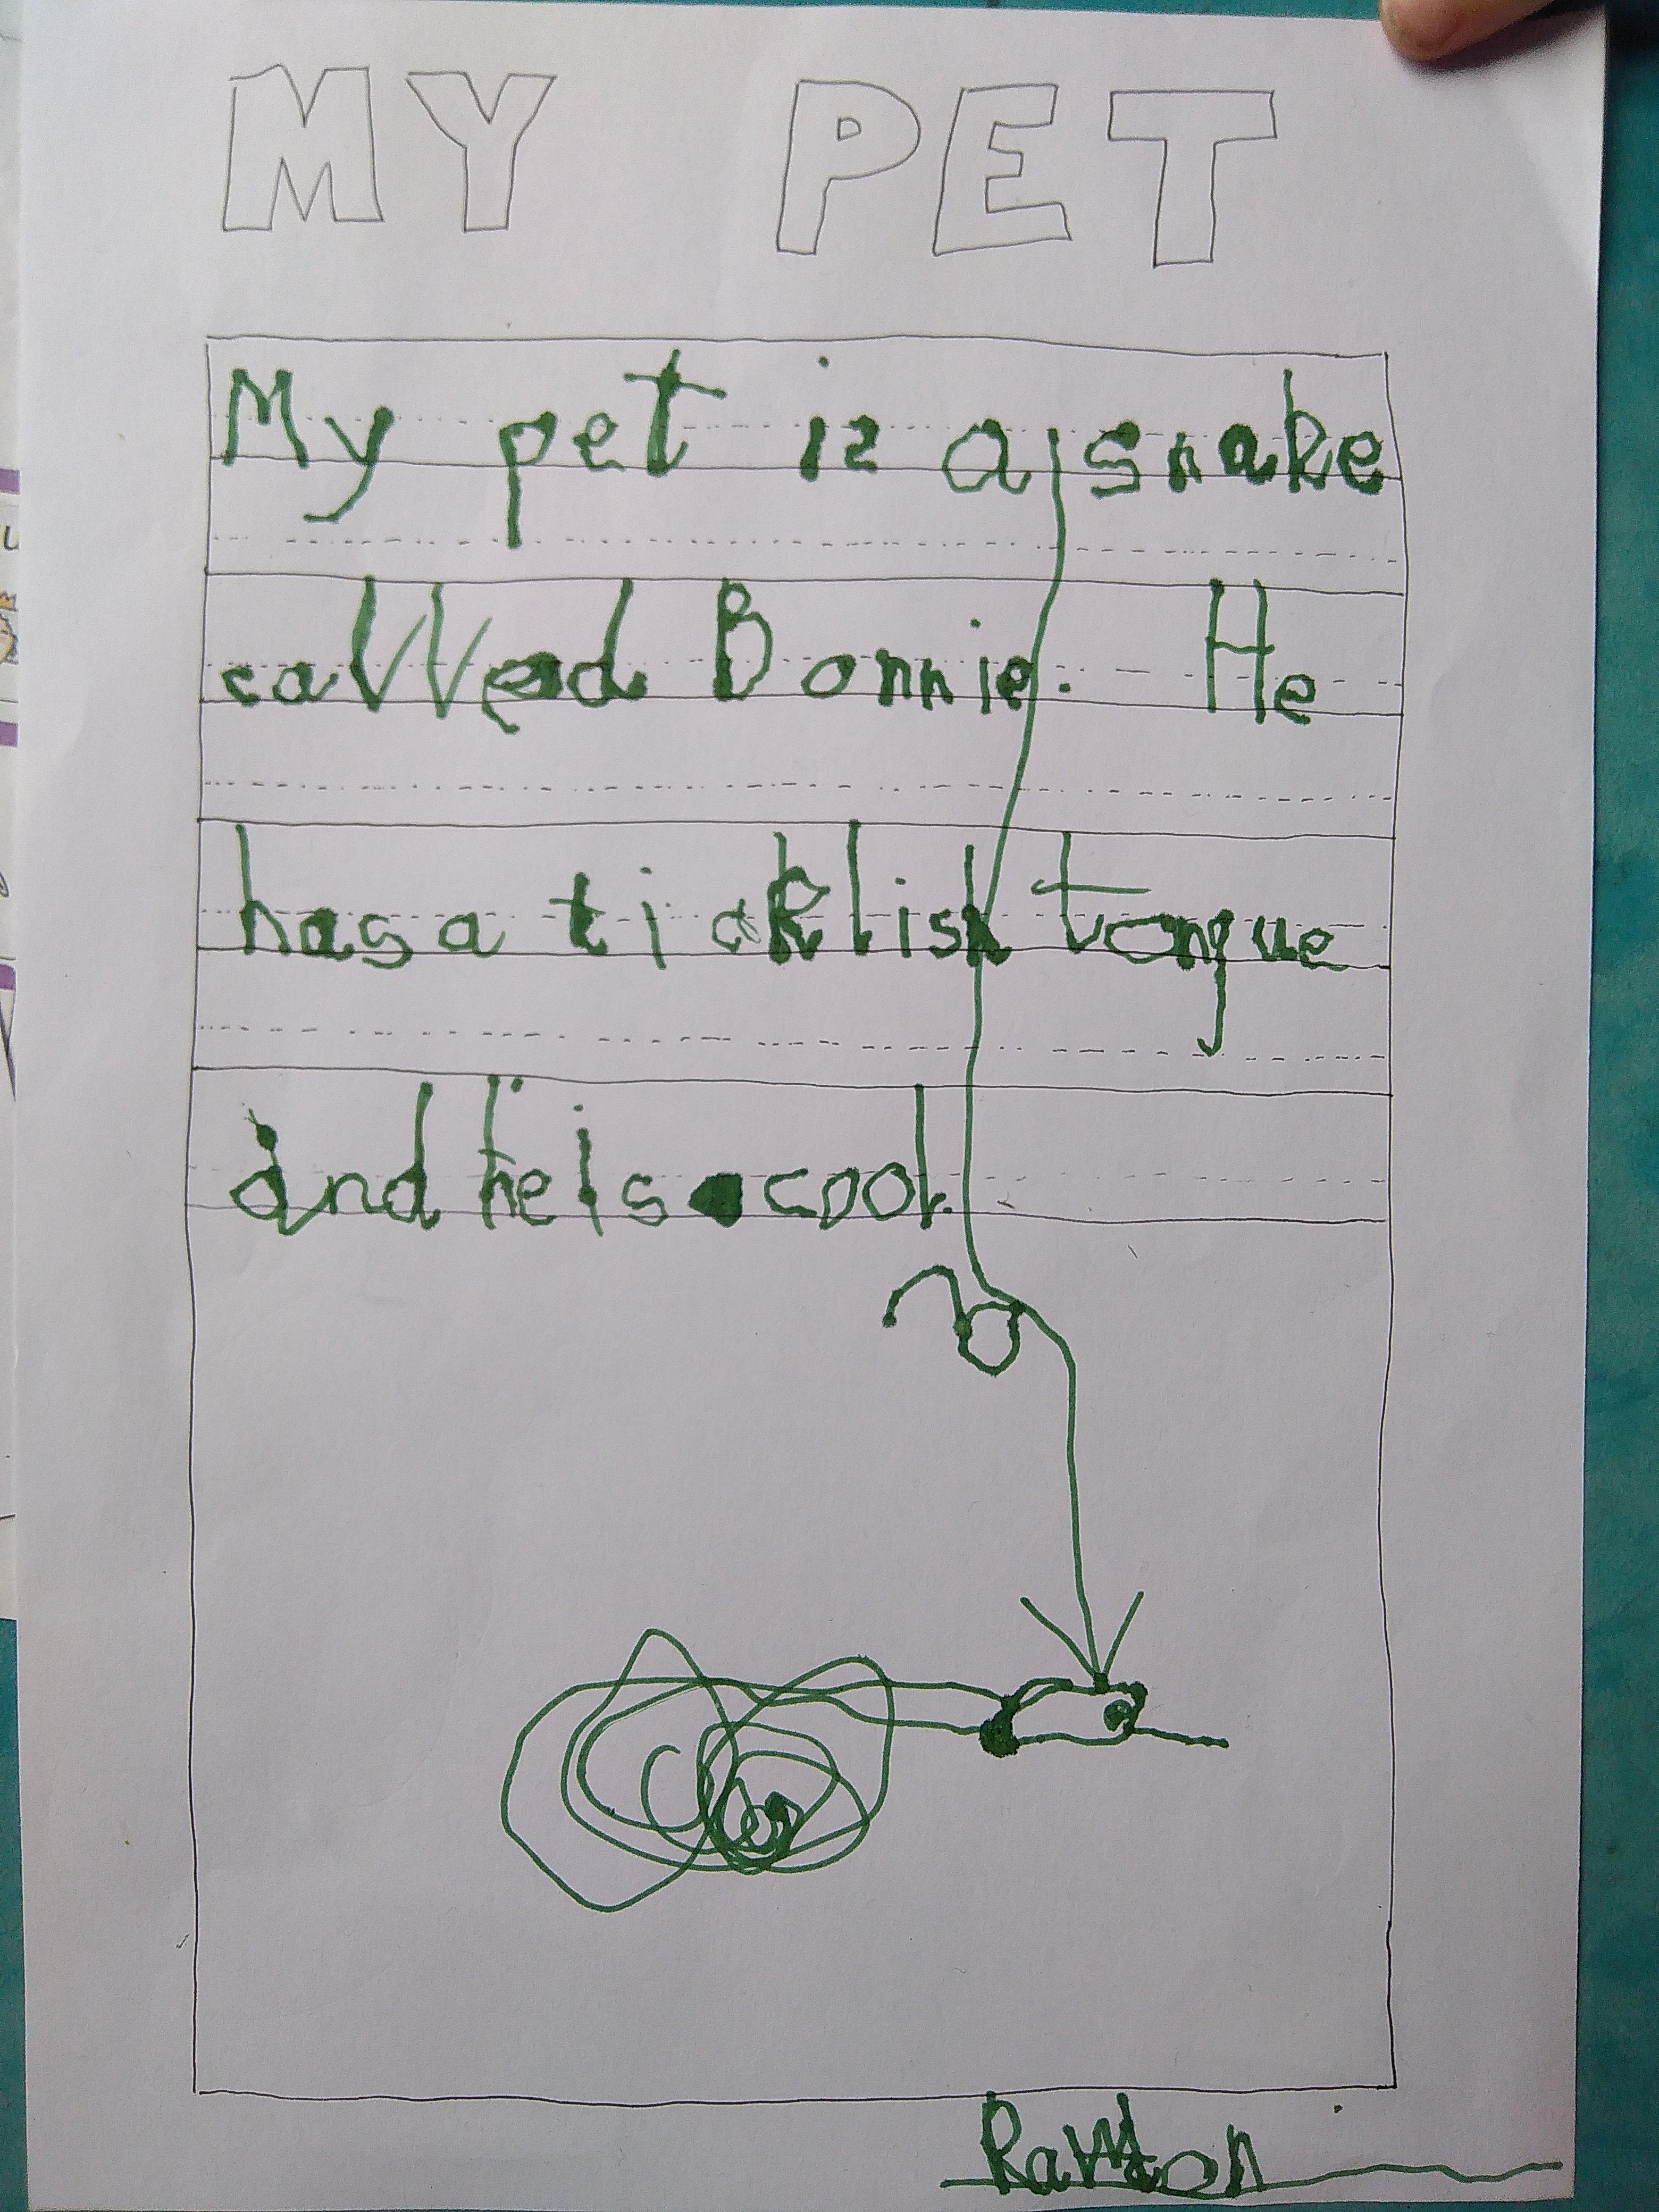 MY PET
My pet is a snake
called Bonnie. He
has a ticklish tongue
and he is cool.